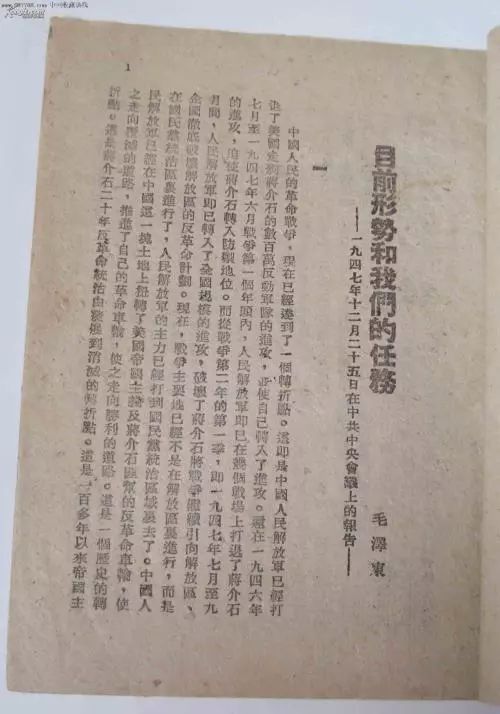 目前形勢和我們的任務
——一九四七年十二月二十五日在中共中央會議上的報告——
毛澤東
一
中國人民的革命戰爭，現在已經達到了一個轉折點。這即是中國人民解放軍已經打
退了美國走狗蔣介石的數百萬反動軍隊的進攻，並使自己轉入了進攻。還在一九四六年
七月至一九四七年六月戰爭第一個年頭內，人民解放軍即已在幾個戰場上打退了蔣介石
的進攻，迫使蔣介石轉入防禦地位。而從戰爭第二年的第一季，即一九四七年七月至九
月間，人民解放軍即已轉入了全國規模的進攻，破壞了蔣介石將戰爭繼續引向解放區、
企圖徹底破壞解放區的反革命計劃。現在，戰爭主要地已經不是在解放區裏進行，而是
在國民黨統治區裏進行了，人民解放軍的主力已經打到國民黨統治區域裏去了。中國人
民解放軍已經在中國這一塊土地上扭轉了美國帝國主義及蔣介石匪幫的反革命車輪，使
之走向覆滅的道路，推進了自己的革命車輪，使之走向勝利的道路。這是一個歷史的轉
折點。這是蔣介石二十年反革命統治由發展到消滅的轉折點。這是一百多年以來帝國主
1